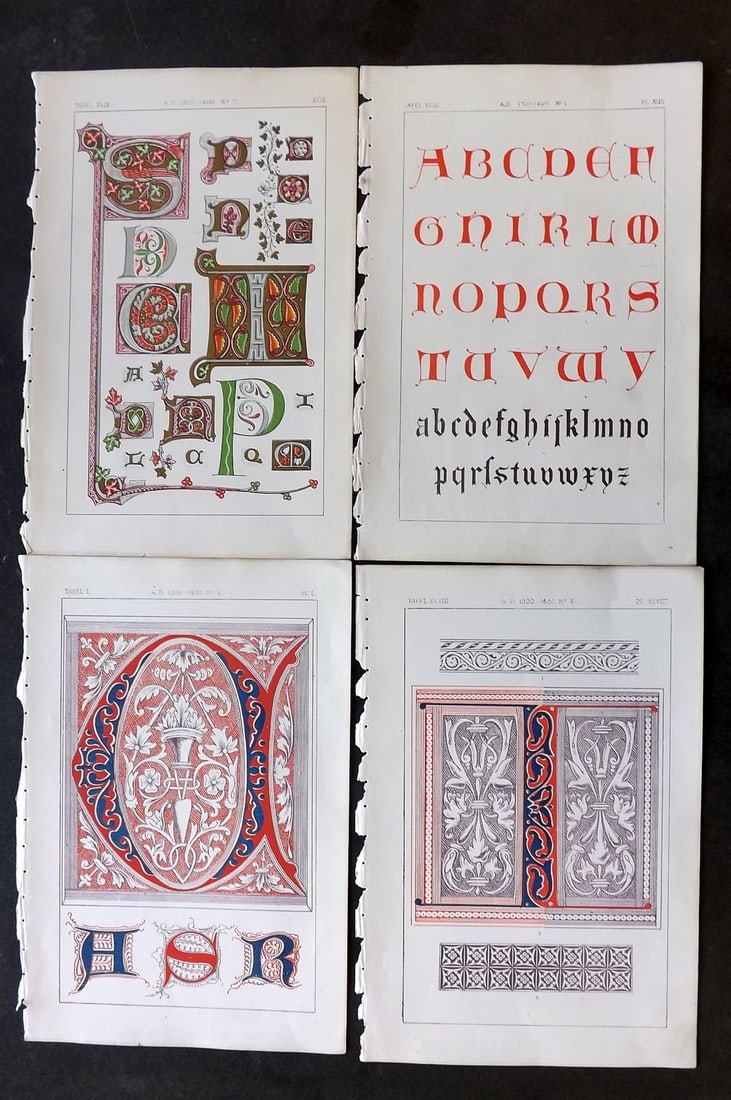 TAFEL XLIX. A.D. 1300-1400. Nº 7. XLIX.
S P
n e
D
E H
A
P I
L a Q M
TAFEL XLIII A.D. 1300-1400. Nº 1. PL. XLIII
A B C D E F
G H I K L M
N O P Q R S
T U V W Y
abcdefghijklmno
pqrſstuvwxyz
TAFEL L. A.D. 1300-1400. Nº 8. PL. L.
A S R
TAFEL XLVIII A.D. 1300-1400. Nº 6. PL. XLVIII